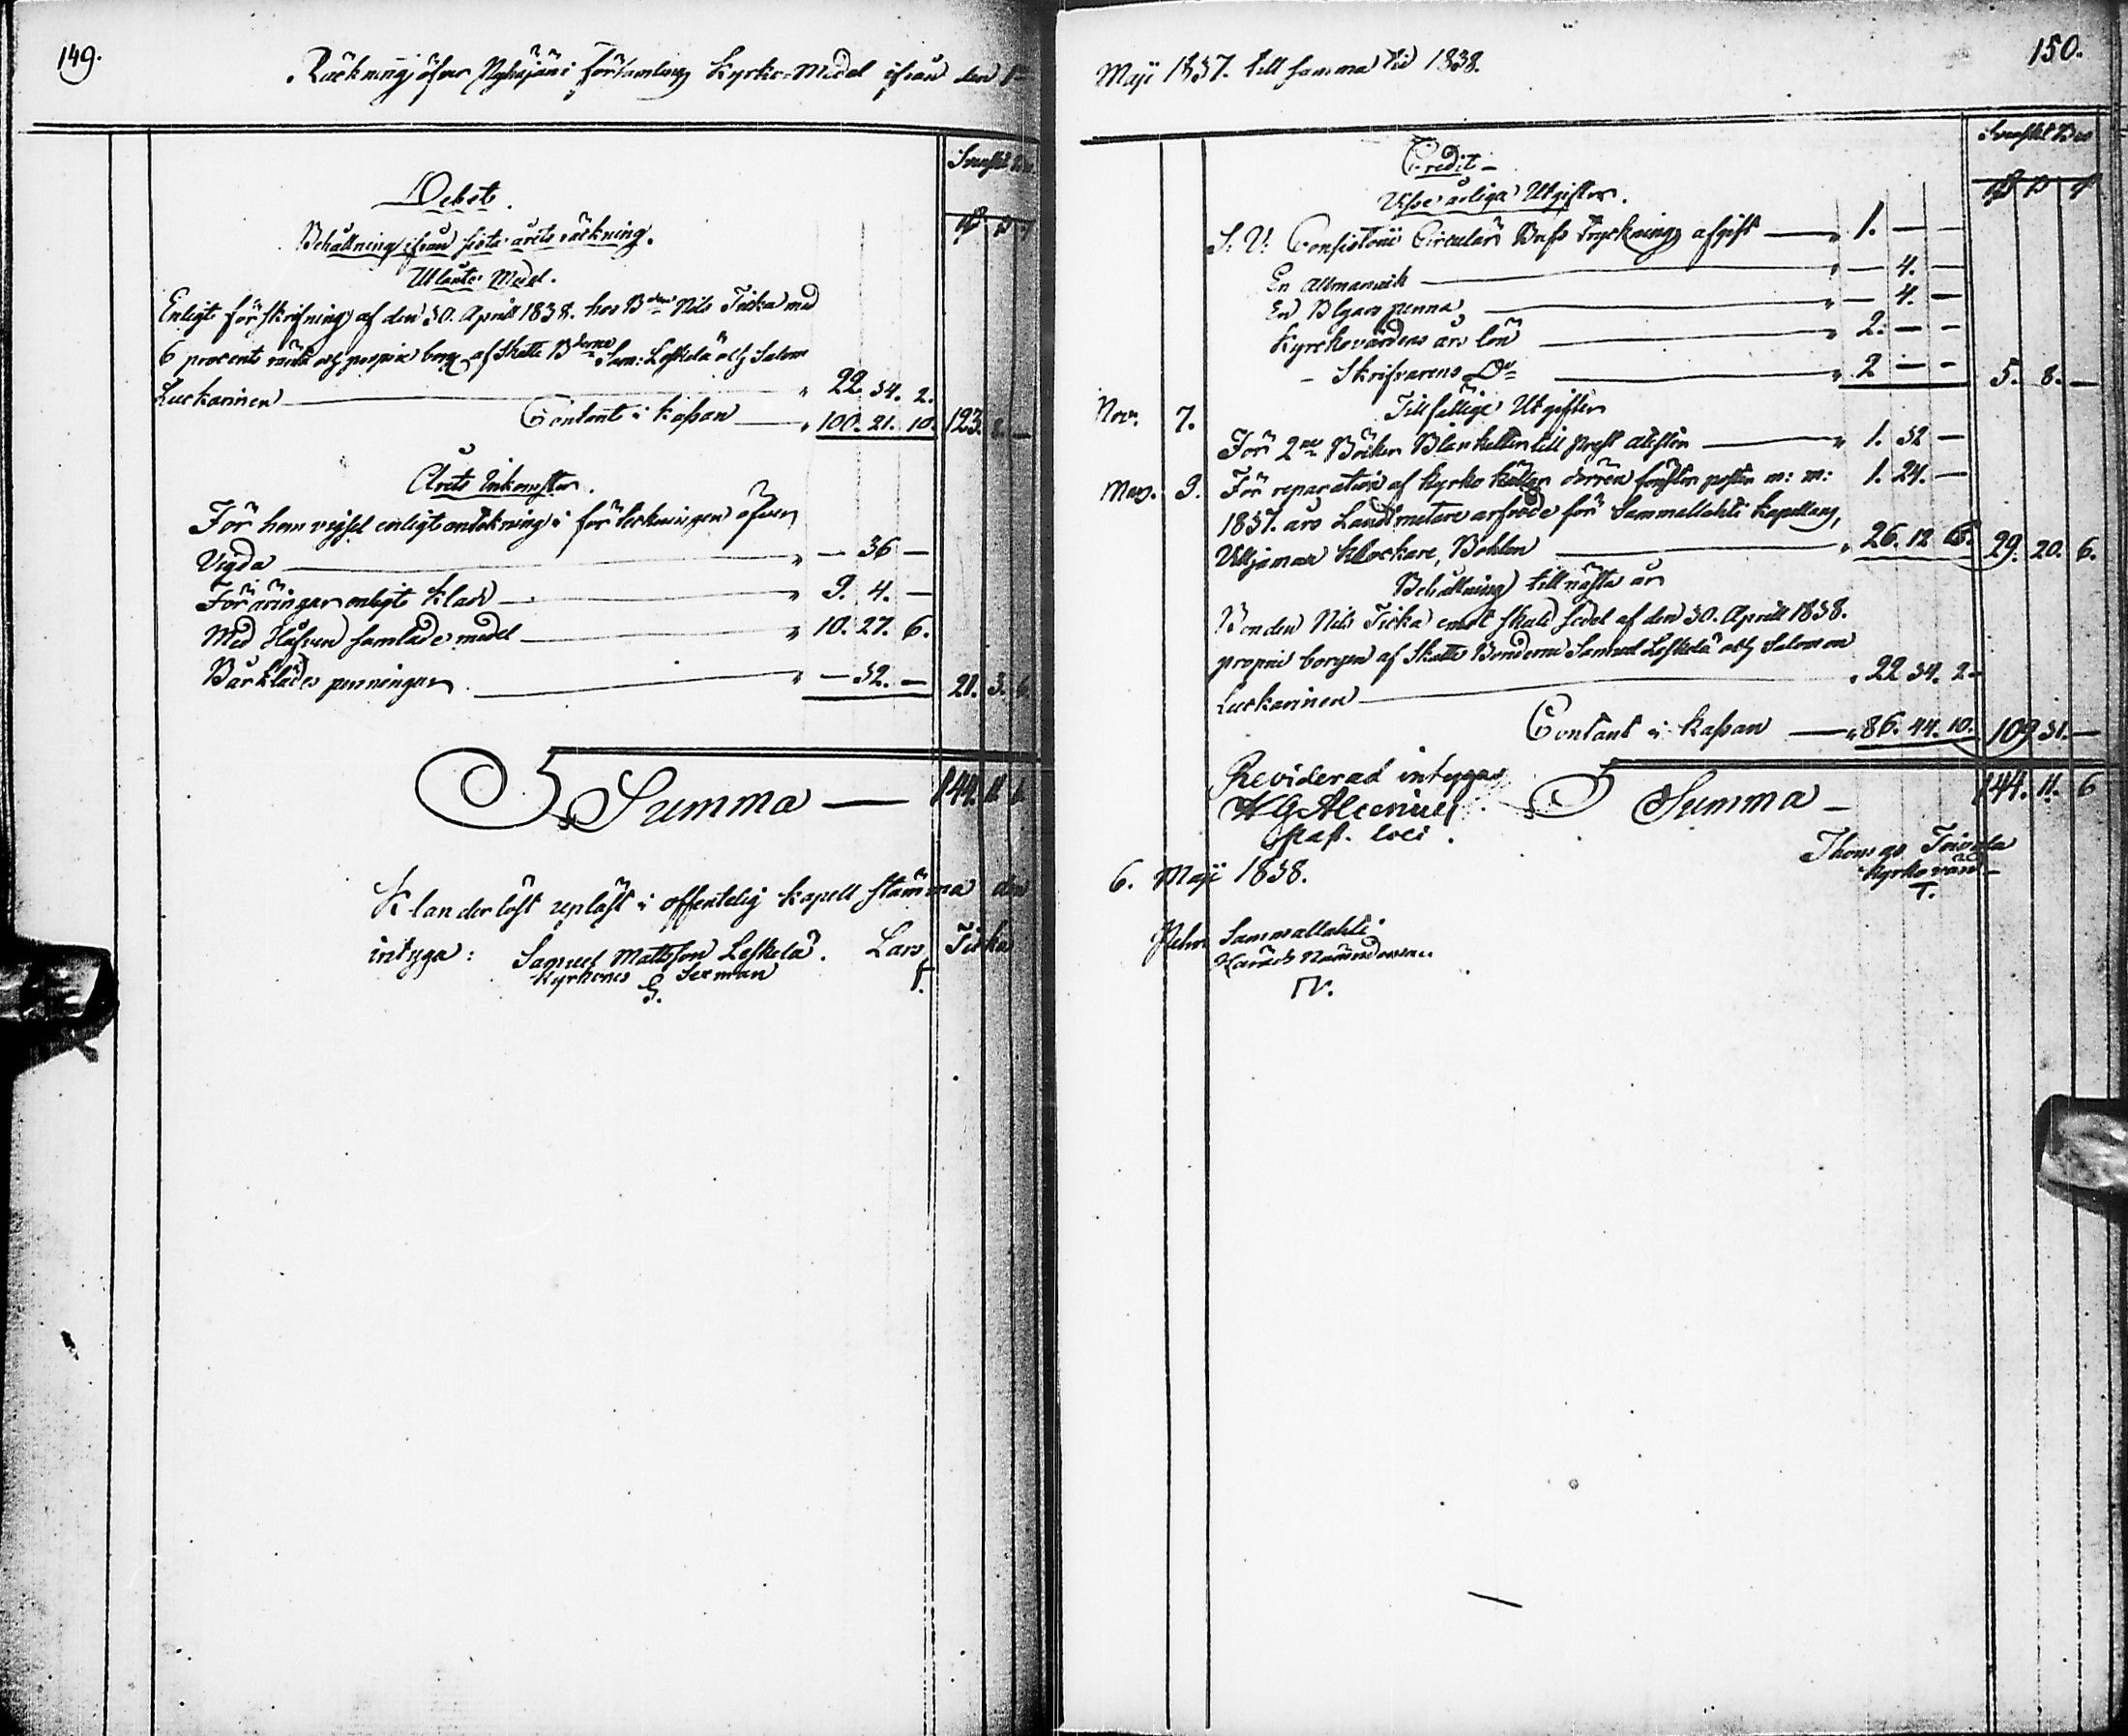 149.
Räckning öfver Nykyjärvi Församlings Kyrko-Medel ifrån den 1
Svenskt
Debet.
Rd s
Behållning ifrån sista årets räckning.
Utlånte Medel.
Enligt förskrifning af den 30. April 1838. hos Bden Nils Ticka med
6 procents ränta och proprie borg. af Skatte Bderne Sam: Leskelä och Salom
Luckarinen — " 22. 34. 2.
Contant i Kassan — " 100. 21. 10. 123. 8. —
Årets Inkomster.
För hem vigsel enligt antekning i förteckningen öfver
Vigda — " — 36 —
Föräringar enligt Kladd — " 9. 4. —
Med Håfven samlade medel — " 10. 27. 6.
Bårklädes penningar — " — 32. — 21. 3. 6.
Summa — 144. 11. 6.
Klanderlöst upläst i offentelig Kapell stämma den
intyga: Samuel Mattsson Leskelä. Lars Ticka
Kyrkones Sexman
150.
Maji 1837. till samma tid 1838.
Svenskt Bco
Credit —
Rd s r
Visse årliga Utgifter.
S. V. Consistorii Circulär Brefs Trycknings afgift — " 1. — —
En Allmanack — " — 4. —
En Blyars penna — " — 4. —
Kyrckovärdens års lön — " 2. — —
— Skrifvarens Do — " 2 — — 5. 8. —
Tillfällige Utgifter
Nov. 7. För 2ne Böcker Blanketter till Prest atester — " 1. 32 —
May. 9. För reparation af Kyrko dörren fönster poster m: m: 1. 24. —
1837. års Landtmetare arfvode för Sammallahti Kapellans,
Klockare, Bohlen — " 26. 12 6. 29. 20. 6.
Behållning till nästa år
Bonden Nils Ticka emot skuld sedel af den 30. Aprill 1838.
proprie borgen af Skatte Bönderne Samuel Leskelä och Salomon
Luckarinen — " 22 34. 2 —
Contant i Kassan — " 86. 44. 10. 109 31. —
Summa — 144. 11. 6
Reviderad intygas
Past. loci.
Thomas Toivola
Kyrkovärd
T.
6. Maji 1838.
Pehr Sammallahti
Härads Nämndeman